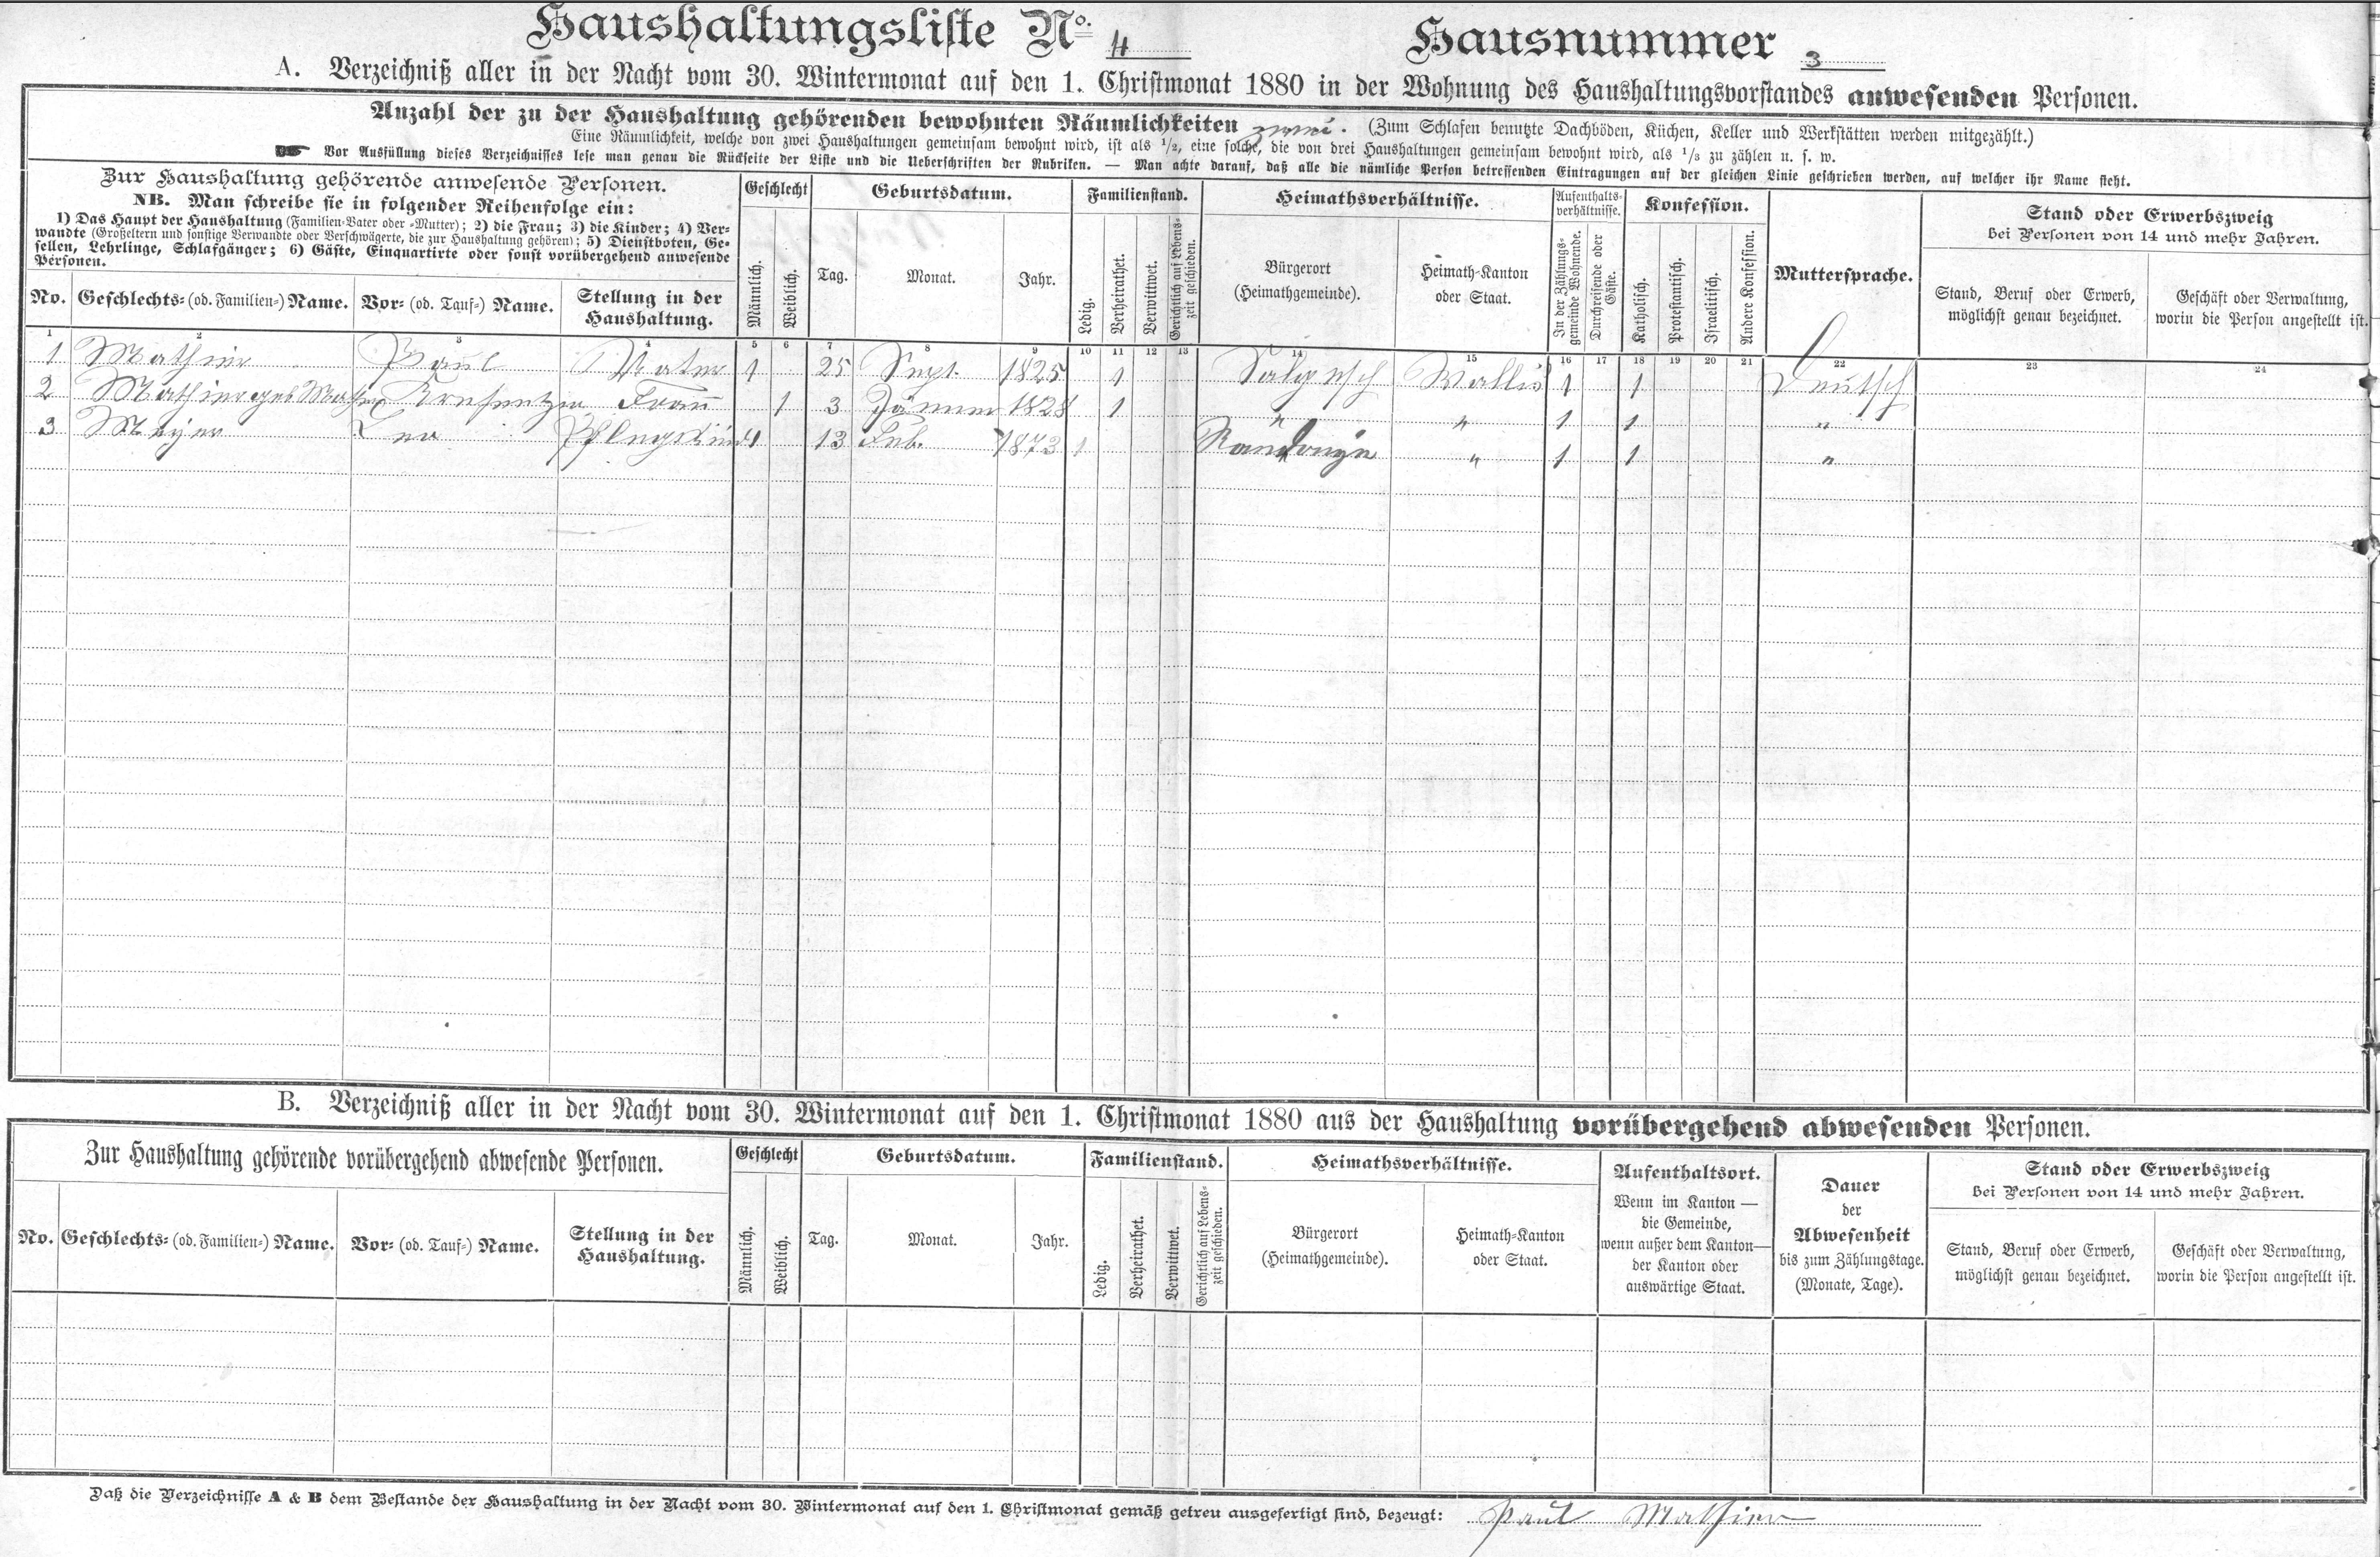 Haushaltungsliste No. 4 Hausnummer 3
A. Verzeichniß aller in der Nacht vom 30. Wintermonat auf den 1. Christmonat 1880 in der Wohnung des Haushaltungsvorstandes anwesenden Personen.
Anzahl der zu der Haushaltung gehörenden bewohnten Räumlichkeiten zwei. (Zum Schlafen benutzte Dachböden, Küchen, Keller und Werkstätten werden mitgezählt.)
Eine Räumlichkeit, welche von zwei Haushaltungen gemeinsam bewohnt wird, ist als 1/2, eine solche, die von drei Haushaltungen gemeinsam bewohnt wird, als 1/3 zu zählen u. s. w.
☛ Vor Ausfüllung dieses Verzeichnisses lese man genau die Rückseite der Liste und die Ueberschriften der Rubriken. — Man achte darauf, daß alle die nämliche Person betreffenden Eintragungen auf der gleichen Linie geschrieben werden, auf welcher ihr Name steht.
Zur Haushaltung gehörende anwesende Personen.
NB. Man schreibe sie in folgender Reihenfolge ein:
1) Das Haupt der Haushaltung (Familien-Vater oder -Mutter); 2) die Frau; 3) die Kinder; 4) Ver-
wandte (Großeltern und sonstige Verwandte oder Verschwägerte, die zur Haushaltung gehören); 5) Dienstboten, Ge-
sellen, Lehrlinge, Schlafgänger; 6) Gäste, Einquartirte oder sonst vorübergehend anwesende
Personen.
No. Geschlechts- (od. Familien-) Name. Vor- (od. Tauf-) Name. Stellung in der
Haushaltung.
Geschlecht
Männlich. Weiblich.
Geburtsdatum.
Tag. Monat. Jahr.
Familienstand.
Ledig. Verheirathet. Verwittwet. Gerichtlich auf Lebens-
zeit geschieden.
Heimathsverhältnisse.
Bürgerort
(Heimathgemeinde).
Heimath-Kanton
oder Staat.
Aufenthalts-
verhältnisse.
In der Zählungs-
gemeinde Wohnende.
Durchreisende oder
Gäste.
Konfession.
Katholisch. Protestantisch. Israelitisch. Andere Konfession.
Muttersprache.
Stand oder Erwerbszweig
bei Personen von 14 und mehr Jahren.
Stand, Beruf oder Erwerb,
möglichst genau bezeichnet.
Geschäft oder Verwaltung,
worin die Person angestellt ist.
1 2 3 4 5 6 7 8 9 10 11 12 13 14 15 16 17 18 19 20 21 22 23 24
1 Mathier Paul Vater 1 25 Sept. 1825 1 Salgesch Wallis 1 1 Deutsch
2 Mathier geb Mathier Kresentzia Frau 1 3 Jänner 1828 1 " " 1 1 "
3 Meyer Leo Pflegekind 1 13 Feb. 1873 1 Randonye " 1 1 "
B. Verzeichniß aller in der Nacht vom 30. Wintermonat auf den 1. Christmonat 1880 aus der Haushaltung vorübergehend abwesenden Personen.
Zur Haushaltung gehörende vorübergehend abwesende Personen.
No. Geschlechts- (od. Familien-) Name. Vor- (od. Tauf-) Name. Stellung in der
Haushaltung.
Geschlecht
Männlich. Weiblich.
Geburtsdatum.
Tag. Monat. Jahr.
Familienstand.
Ledig. Verheirathet. Verwittwet. Gerichtlich auf Lebens-
zeit geschieden.
Heimathsverhältnisse.
Bürgerort
(Heimathgemeinde).
Heimath-Kanton
oder Staat.
Aufenthaltsort.
Wenn im Kanton —
die Gemeinde,
wenn außer dem Kanton—
der Kanton oder
auswärtige Staat.
Dauer
der
Abwesenheit
bis zum Zählungstage.
(Monate, Tage).
Stand oder Erwerbszweig
bei Personen von 14 und mehr Jahren.
Stand, Beruf oder Erwerb,
möglichst genau bezeichnet.
Geschäft oder Verwaltung,
worin die Person angestellt ist.
Daß die Verzeichnisse A & B dem Bestande der Haushaltung in der Nacht vom 30. Wintermonat auf den 1. Christmonat gemäß getreu ausgefertigt sind, bezeugt: Paul Mathier